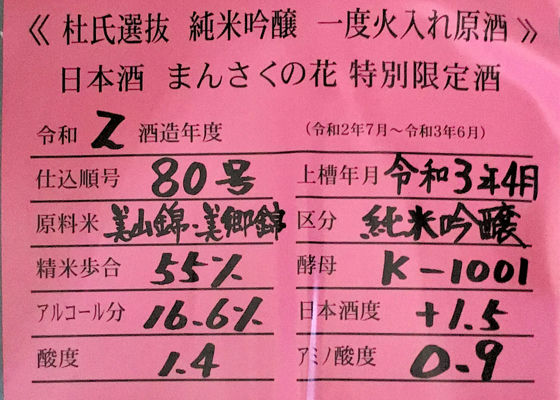 《 杜氏選抜 純米吟醸 一度火入れ原酒 》
日本酒 まんさくの花 特別限定酒
令和 2 酒造年度 (令和2年7月〜令和3年6月)
仕込順号 80号 上槽年月 令和3年4月
原料米 美山錦・美郷錦 区分 純米吟醸
精米歩合 55% 酵母 K-1001
アルコール分 16.6% 日本酒度 +1.5
酸度 1.4 アミノ酸度 0.9